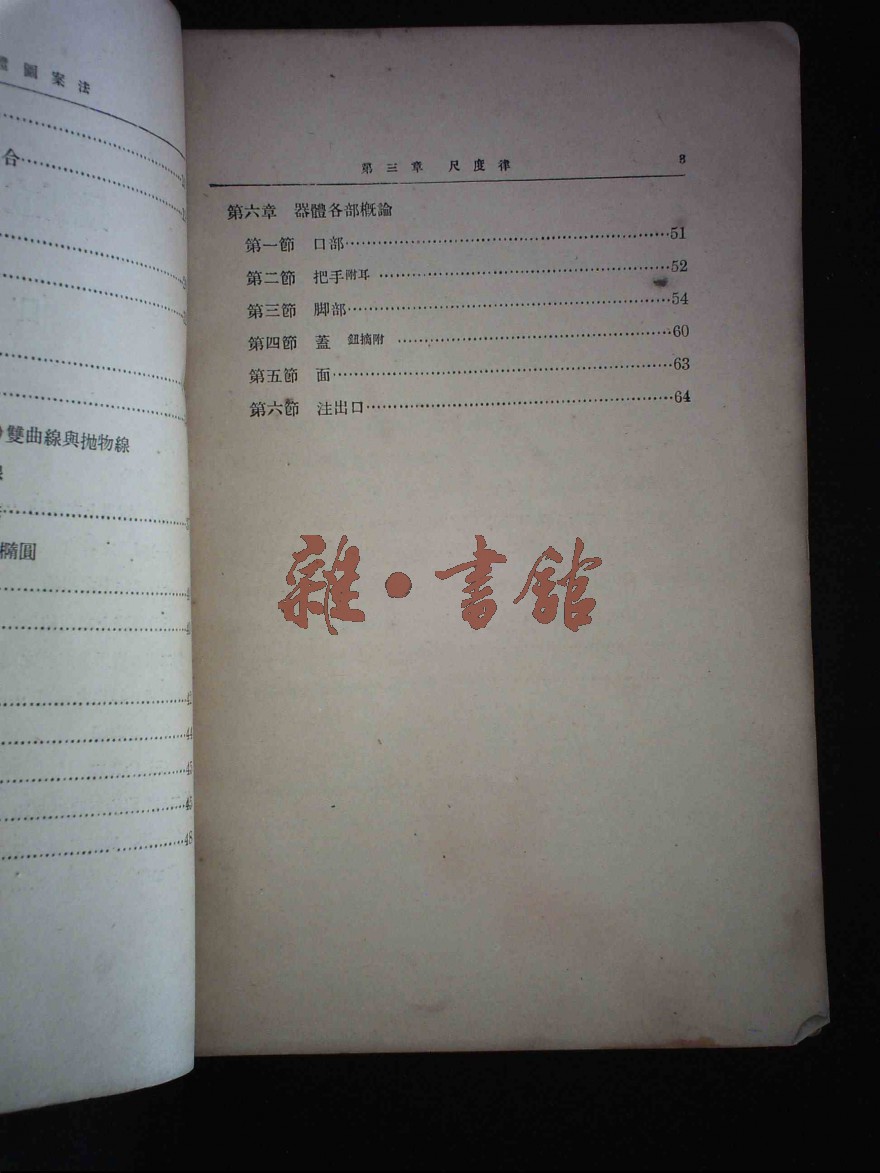 圖案法
合
雙曲線與抛物線
橢圓
42
44
45
45
48
第三章 尺度律 3
第六章 器體各部概論
第一節 口部……51
第二節 把手附耳……52
第三節 脚部……54
第四節 蓋 鈕摘附……60
第五節 面……63
第六節 注出口……64
雜·書館